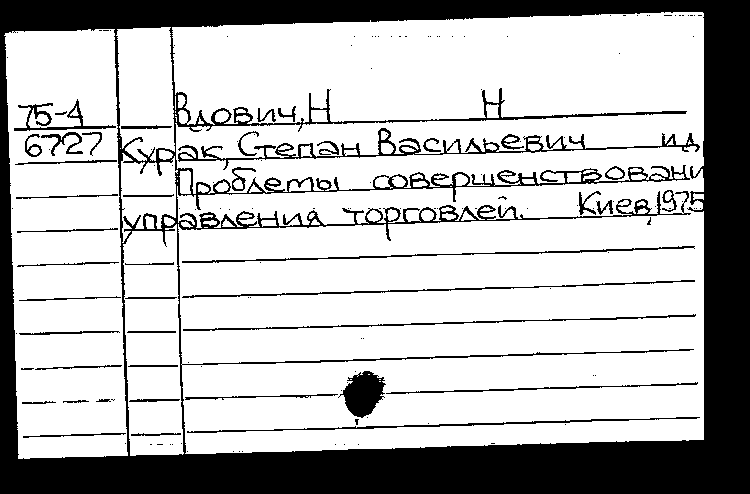 75-4 Вдович, Н Н
6727 Курак, Степан Васильевич и д
Проблемы совершенствовани
управления торговлей. Киев, 1975